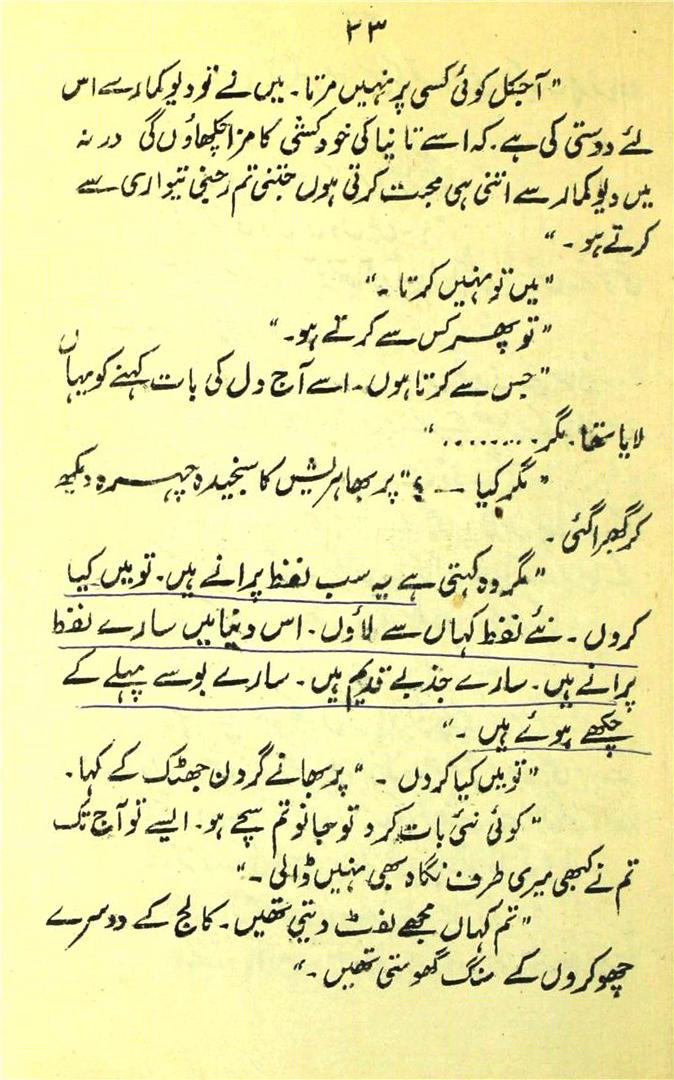 ۲۳
"آجکل کوئی کسی پر نہیں مرتا۔ میں نے تو دیو کمار سے اس
لئے دوستی کی ہے۔ کہ اسے تانیا کی خودکشی کا مزا چکھاؤں گی ورنہ
میں دیو کمار سے اتنی ہی محبت کرتی ہوں جتنی تم رجنی تیواری سے
کرتے ہو۔"
"میں تو نہیں کرتا۔"
"تو پھر کس سے کرتے ہو۔"
"جس سے کرتا ہوں۔ اسے آج دل کی بات کہنے کو یہاں
لایا تھا۔ مگر۔........"
"مگر کیا ــ ؟" پربھا ہریش کا سنجیدہ چہرہ دیکھ
کر گھبرا گئی۔
"مگر وہ کہتی ہے یہ سب لفظ پرانے ہیں۔ تو میں کیا
کروں۔ نئے لفظ کہاں سے لاؤں۔ اس دنیا میں سارے لفظ
پرانے ہیں۔ سارے جذبے قدیم ہیں۔ سارے بوسے پہلے کے
چکھے ہوئے ہیں۔"
"تو میں کیا کروں۔" پربھا نے گردن جھٹک کے کہا۔
"کوئی نئی بات کرو تو جانو تم سچے ہو۔ ایسے تو آج تک
تم نے کبھی میری طرف نگاہ بھی نہیں ڈالی۔"
"تم کہاں مجھے لفٹ دیتی تھیں۔ کالج کے دوسرے
چھوکروں کے سنگ گھومتی تھیں۔"